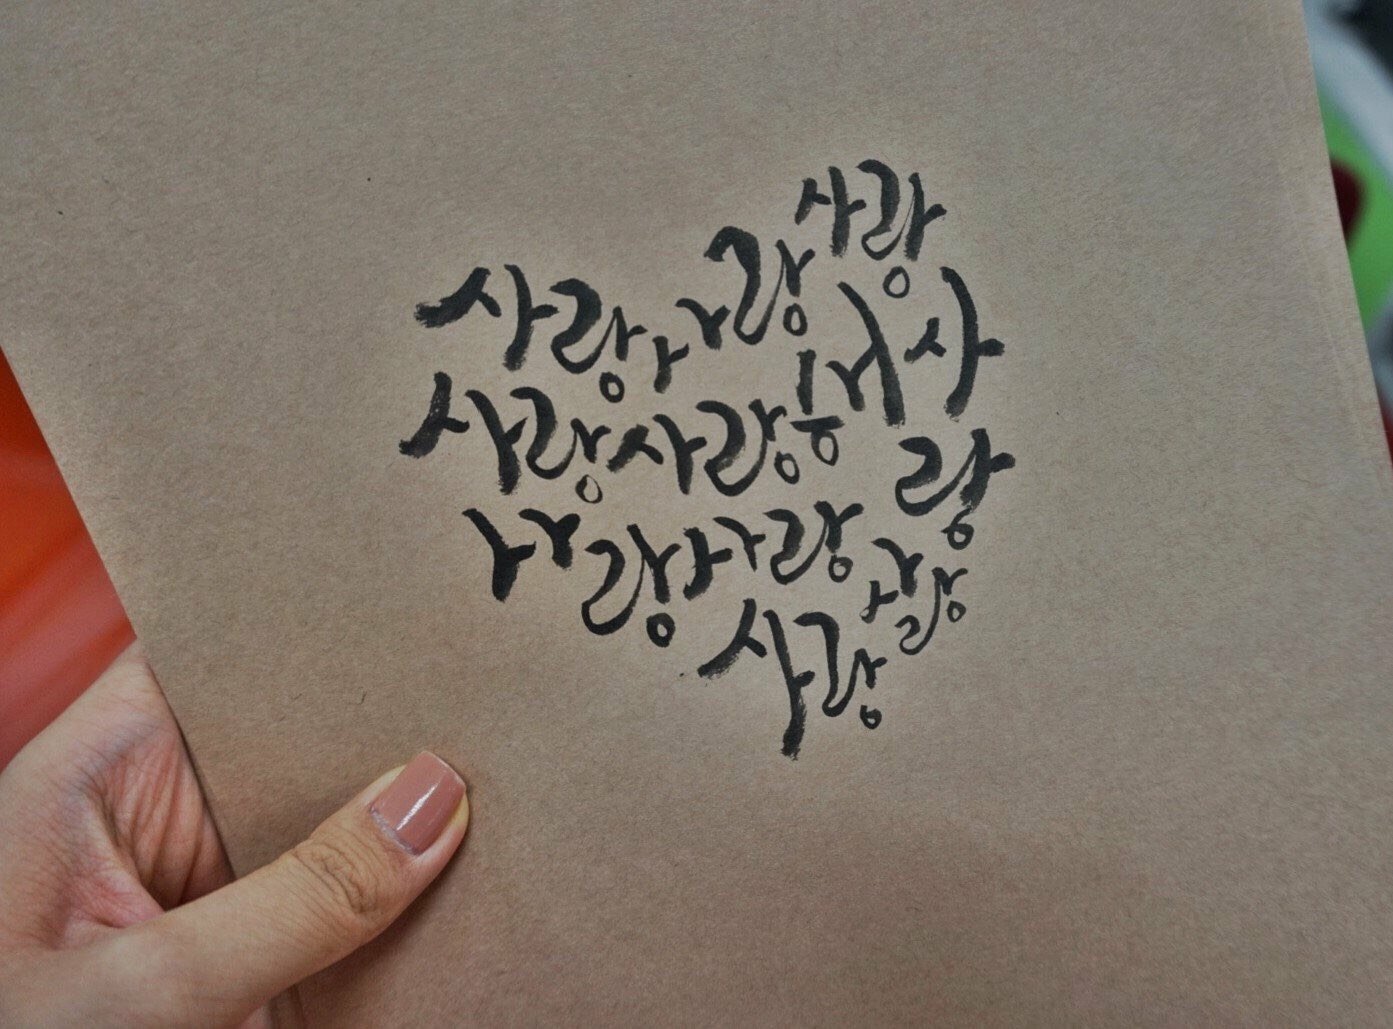 사랑 사랑 사랑
사랑 사랑 사랑
사랑 사랑 사랑
사랑